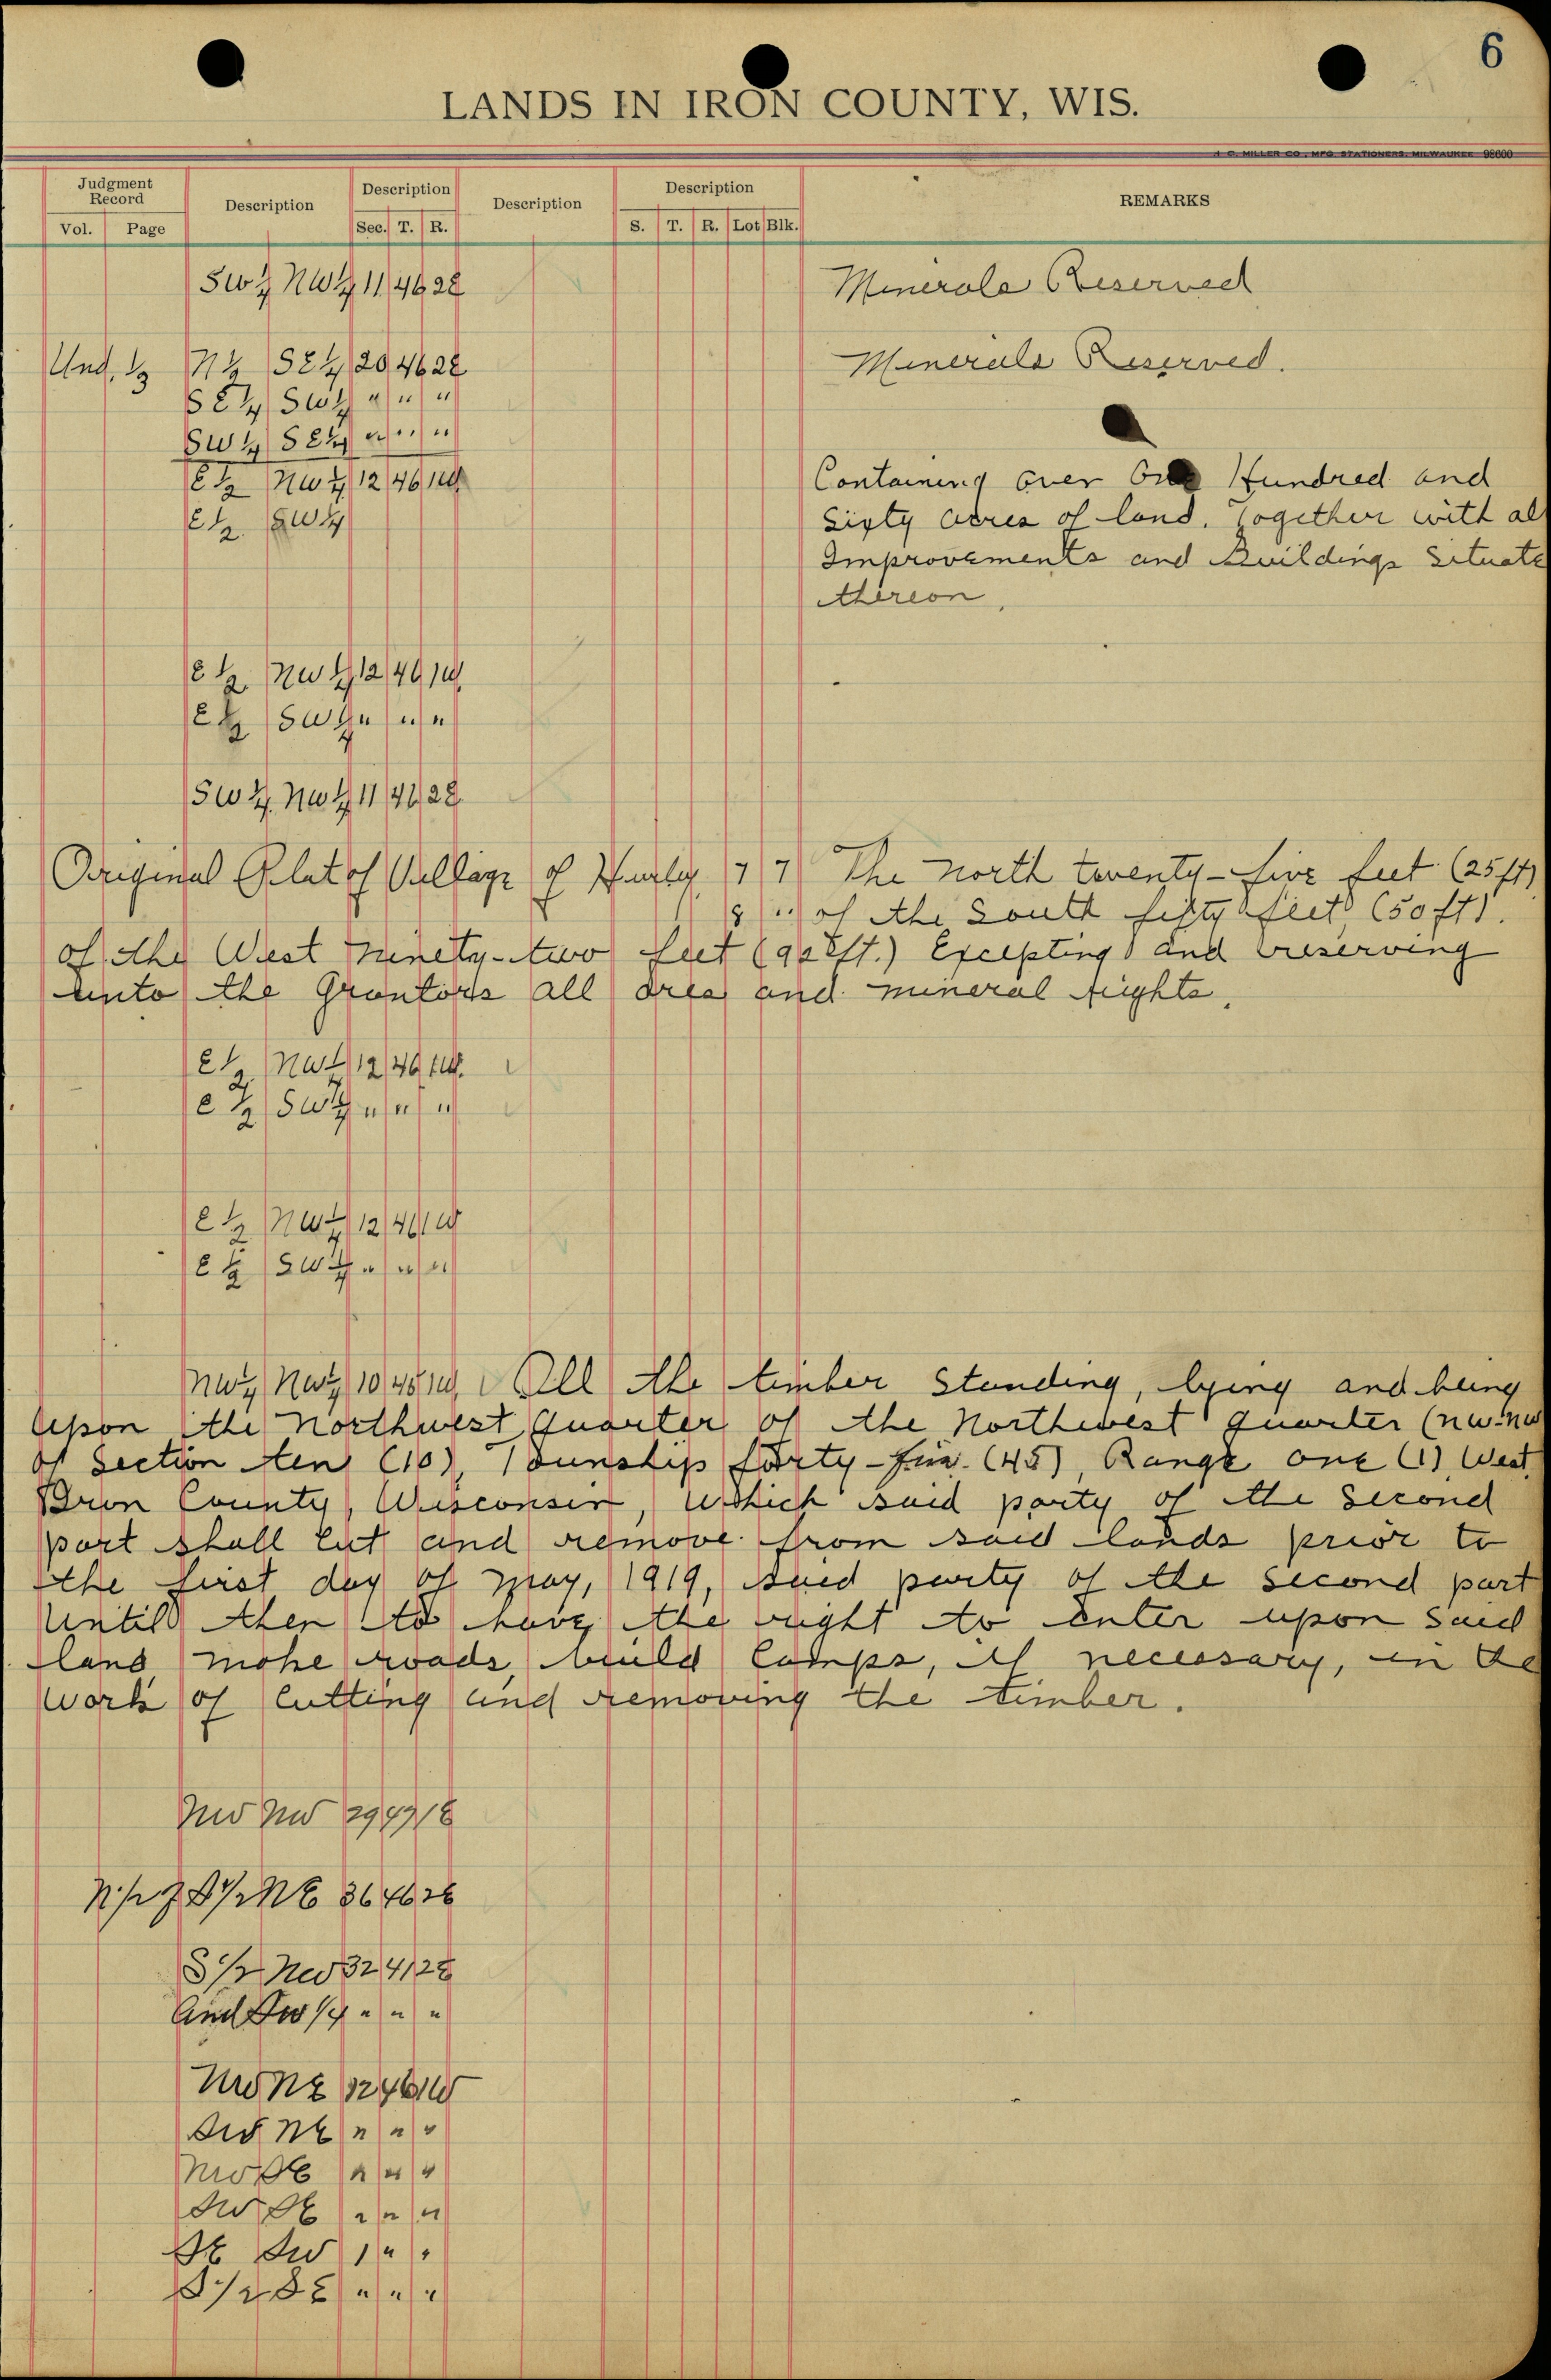 6
LANDS IN IRON COUNTY, WIS.
H. C. MILLER CO., MFG. STATIONERS, MILWAUKEE 98600
Judgment Record Description Description Description Description REMARKS
Vol. Page Sec. T. R. S. T. R. Lot Blk.
SW¼ NW¼ 11 46 2E Minerals Reserved
Und. ½ N½ SE¼ 20 46 2E Minerals Reserved.
SE¼ SW¼ " " "
SW¼ SE¼ " " "
E½ NW¼ 12 46 1W Containing over One Hundred and
E½ SW¼ Sixty acres of land. Together with all
Improvements and Buildings Situate
thereon.
E½ NW¼ 12 46 1W
E½ SW¼ " " "
SW¼ NW¼ 11 46 2E
Original Plat of Village of Hurley 7 7 The north twenty-five feet (25 ft)
8 " of the South fifty feet (50 ft).
of the West ninety-two feet (92 ft.) Excepting and reserving
unto the Grantors all ores and mineral rights.
E½ NW¼ 12 46 1W
E½ SW¼ " " "
E½ NW¼ 12 46 1W
E½ SW¼ " " "
NW¼ NW¼ 10 45 1W All the timber Standing, lying and being
Upon the Northwest quarter of the Northwest quarter (NW-NW
of Section ten (10), Township forty-five (45), Range one (1) West,
Iron County, Wisconsin, which said party of the Second
part shall cut and remove from said lands prior to
the first day of May, 1919, said party of the second part
Until then to have the right to enter upon said
land, make roads, build Camps, if necessary, in the
work of Cutting and removing the timber.
NW NW 29 47 1E
N½ of S½ NE 36 46 2E
S½ NW 32 41 2E
And SW ¼ " " "
NW NE 12 46 1W
SW NE " " "
NW SE " " "
SW SE " " "
SE SW " " "
S½ SE " " "